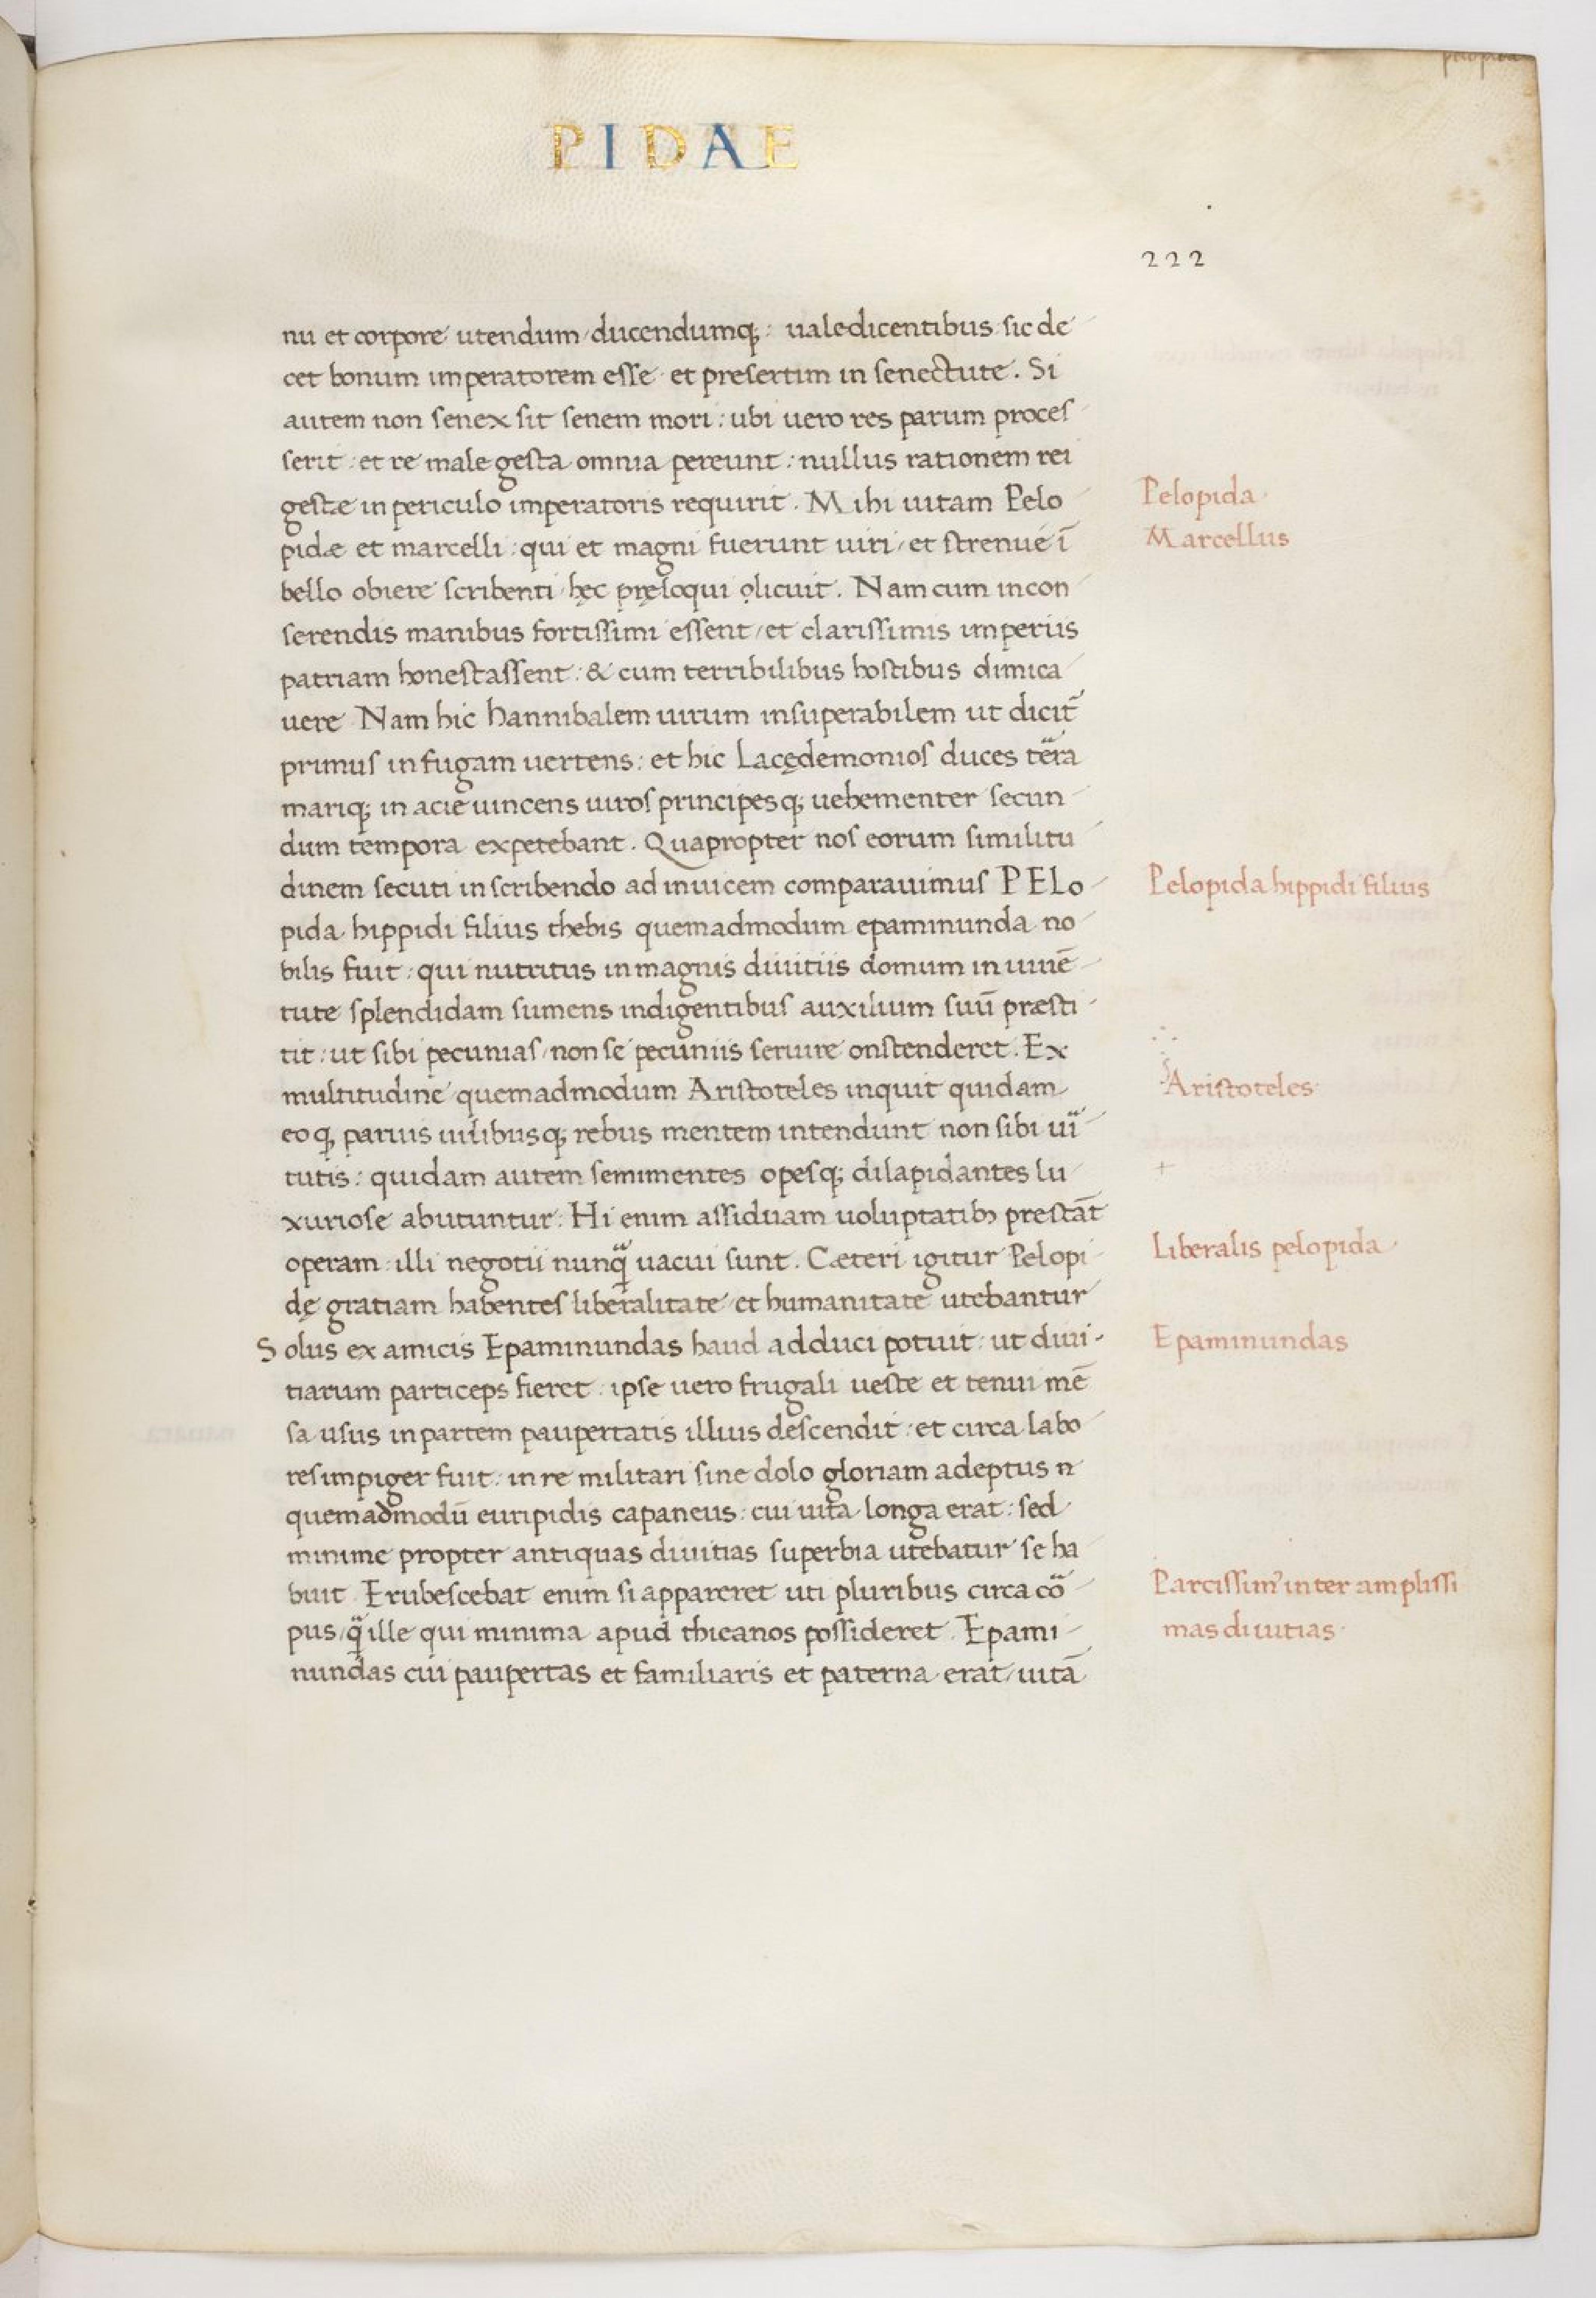 pelopida
PIDAE
222
nu et corpore utendum / ducendumq; : uale dicentibus : sic de
cet bonum imperatorem esse · et presertim in senectute . Si
autem non senex sit senem mori : ubi uero res parum proces
serit : et re male gesta omnia pereunt : nullus rationem rei
gestæ in periculo imperatoris requirit . Mihi uitam Pelo
pidæ et marcelli : qui et magni fuerunt uiri / et strenue ī
bello obiere scribenti / hęc pręloqui olicuit . Nam cum in con
serendis manibus fortissimi essent / et clarissimis imperiis
patriam honestassent : & cum terribilibus hostibus dimica
uere Nam hic hannibalem uirum insuperabilem ut dicit̄
primus in fugam uertens : et hic Lacędemonios duces terra
mariq; in acie uincens uiros principesq; uehementer secun
dum tempora expetebant . Quapropter nos eorum similitu
dinem secuti in scribendo ad inuicem comparauimus PELo
pida hippidi filius thebis quemadmodum epaminunda no
bilis fuit : qui nutritus in magnis diuitiis domum in iuuē
tute splendidam sumens indigentibus auxilium suū præsti
tit : ut sibi pecunias / non se pecuniis seruire onstenderet . Ex
multitudine quemadmodum Aristoteles inquit quidam
eoq; paruis uilibusq; rebus mentem intendunt non sibi uı̈
tutis : quidam autem semimentes opesq; dilapidantes lu
xuriose abutuntur : Hi enim assiduam uoluptatibꝫ prestāt
operam : illi negotii nunq̈ uacui sunt . Cæteri igitur Pelopi
dę gratiam habentes liberalitate et humanitate utebantur
Solus ex amicis Epaminundas haud adduci potuit : ut diui
tiarum particeps fieret : ipse uero frugali ueste et tenui mē
sa usus in partem paupertatis illius descendit : et circa labo
res impiger fuit : in re militari sine dolo gloriam adeptus n
quemadmodū euripidis capaneus : cui uita longa erat : sed
minime propter antiquas diuitias superbia utebatur se ha
buit Erubescebat enim si appareret uti pluribus circa cö
pus / q̈ ille qui minima apud thieanos possideret . Epami
nundas cui paupertas et familiaris et paterna erat / uitā
Pelopida
Marcellus
Pelopida hippidi filius
Aristoteles
Liberalis pelopida
Epaminundas
Parcissim' inter amplissi
mas diuitias